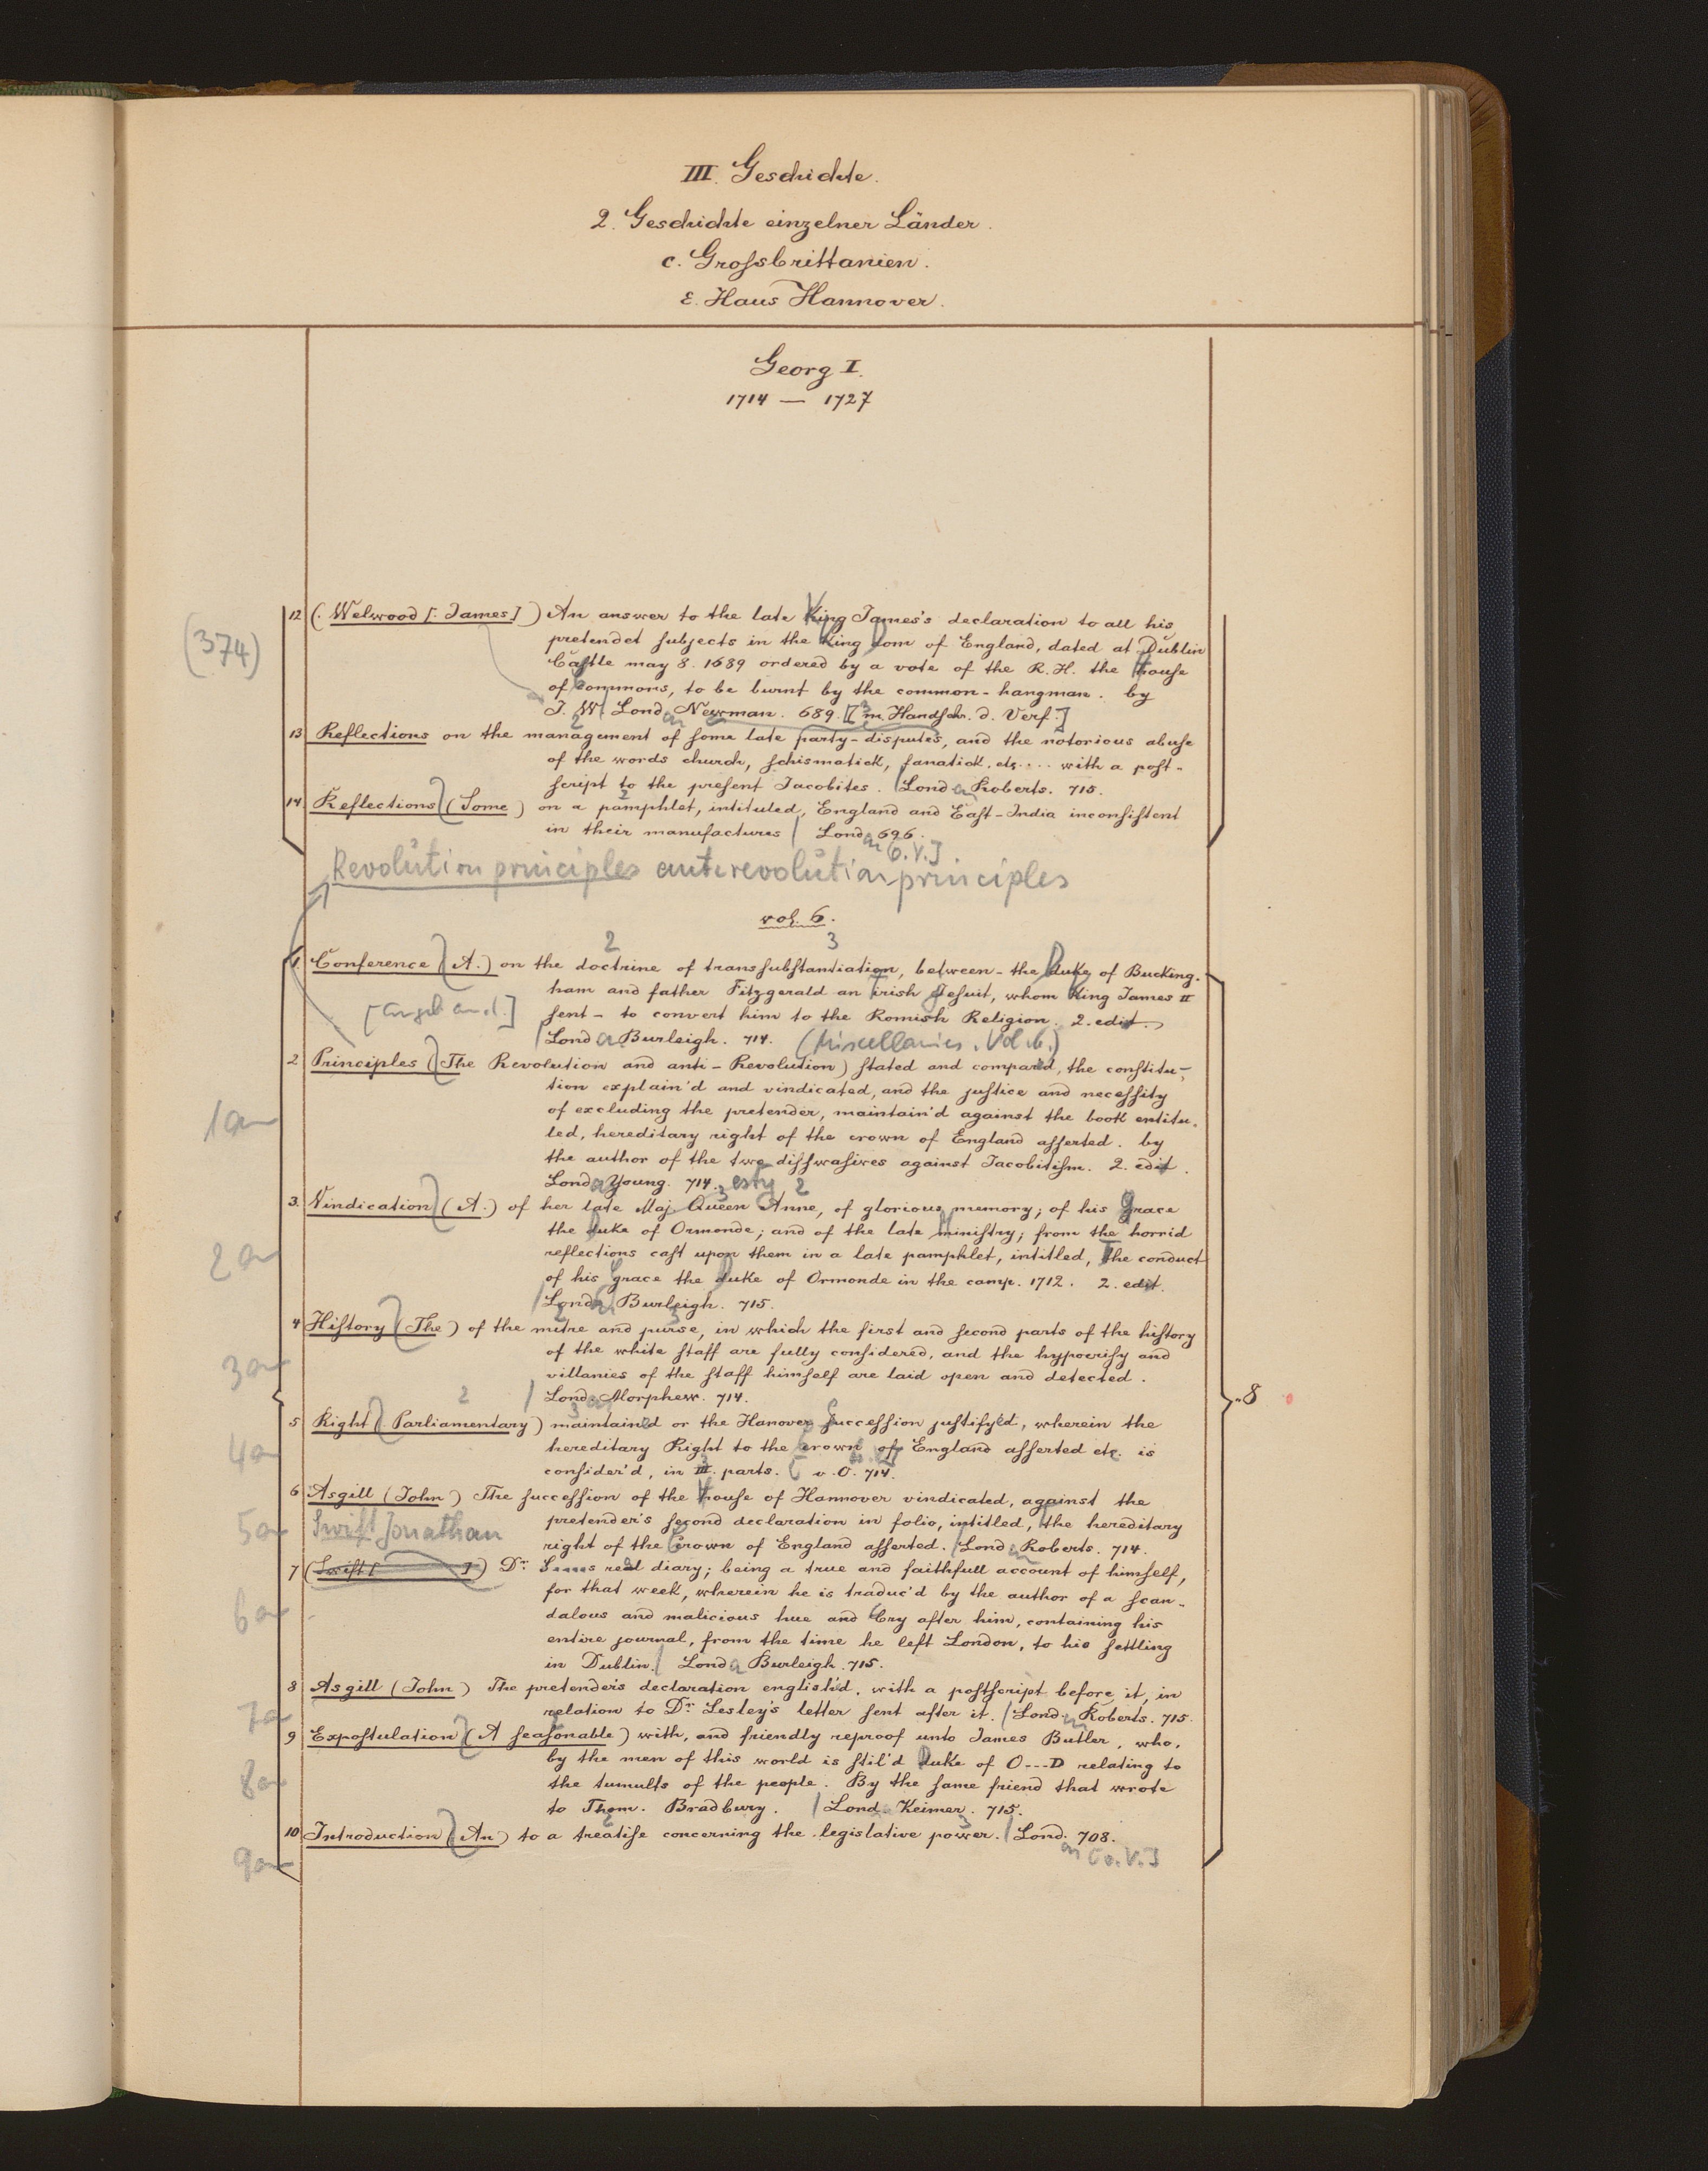 III. Geschichte.
2. Geschichte einzelner Länder.
c. Grossbrittanien.
ε. Haus Hannover.
Georg I.
1714 — 1727
(374)
12 (. Welwood [. James] ) An answer to the late King James's declaration to all his
pretendet subjects in the King dom of England, dated at Dublin
Castle may 8. 1689 ordered by a vote of the R. H. the House
of Commons, to be burnt by the common-hangman. by
J. W. Lond. Newman. 689. [m. Handschr. d. Verf.]
13 Reflections on the management of some late party-disputes, and the notorious abuse
of the words church, schismatick, fanatick, etc.... with a post-
script to the present Jacobites. Lond. Roberts. 715.
14 Reflections (Some) on a pamphlet, intituled, England and East-India inconsistent
in their manufactures Lond. 696.
[o.V.]
Revolution principles antirevolution principles
vol. 6.
2 3
1 Conference (A.) on the doctrine of transsubstantiation, between- the Duke of Bucking-
ham and father Fitzgerald an Irish Jesuit, whom King James II
sent- to convert him to the Romish Religion. 2. edit.
Lond. Burleigh. 714. (Miscellanies. Vol. 6.)
2 Principles (The Revolution and anti-Revolution) stated and compared, the constitu-
tion explain'd and vindicated, and the justice and necessity
1a
of excluding the pretender, maintain'd against the book entitu-
led, hereditary right of the crown of England asserted. by
the author of the two disswasives against Jacobitism. 2. edit.
Lond. Young. 714.
3. Vindication (A.) of her late Maj. Queen Anne, of glorious memory; of his Grace
the Duke of Ormonde; and of the late Ministry; from the horrid
2a
reflections cast upon them in a late pamphlet, intitled, The conduct
of his Grace the Duke of Ormonde in the camp. 1712. 2. edit.
Lond. Burleigh. 715.
4 History (The) of the mitre and purse, in which the first and second parts of the history
of the white staff are fully considered, and the hypocrisy and
3a
villanies of the staff himself are laid open and detected.
Lond. Morphew. 714.
-8
5 Right (Parliamentary) maintained or the Hanover Succession justifyed, wherein the
4a
hereditary Right to the Crown of England asserted etc. is
consider'd, in III. parts. v. O. 714.
6 Asgill (John) The succession of the House of Hannover vindicated, against the
5a
Swift Jonathan
pretender's second declaration in folio, intitled, the hereditary
right of the Crown of England asserted. Lond. Roberts. 714.
7 (Swift [ ]) Dr. S----s real diary; being a true and faithfull account of himself,
for that week, wherein he is traduc'd by the author of a scan-
6a
dalous and malicious hue and Cry after him, containing his
entire journal, from the time he left London, to his settling
in Dublin. Lond. Burleigh. 715.
8 Asgill (John) The pretender's declaration english'd. with a postscript before it, in
7a
relation to Dr. Lesley's letter sent after it. Lond. Roberts. 715.
9 Expostulation (A seasonable) with, and friendly reproof unto James Butler, who,
by the men of this world is stil'd Duke of O---D relating to
8a
the tumults of the people. By the same friend that wrote
to Thom. Bradbury. Lond. Keimer. 715.
10 Introduction (An) to a treatise concerning the legislative power. Lond. 708.
9a
[o.V.]